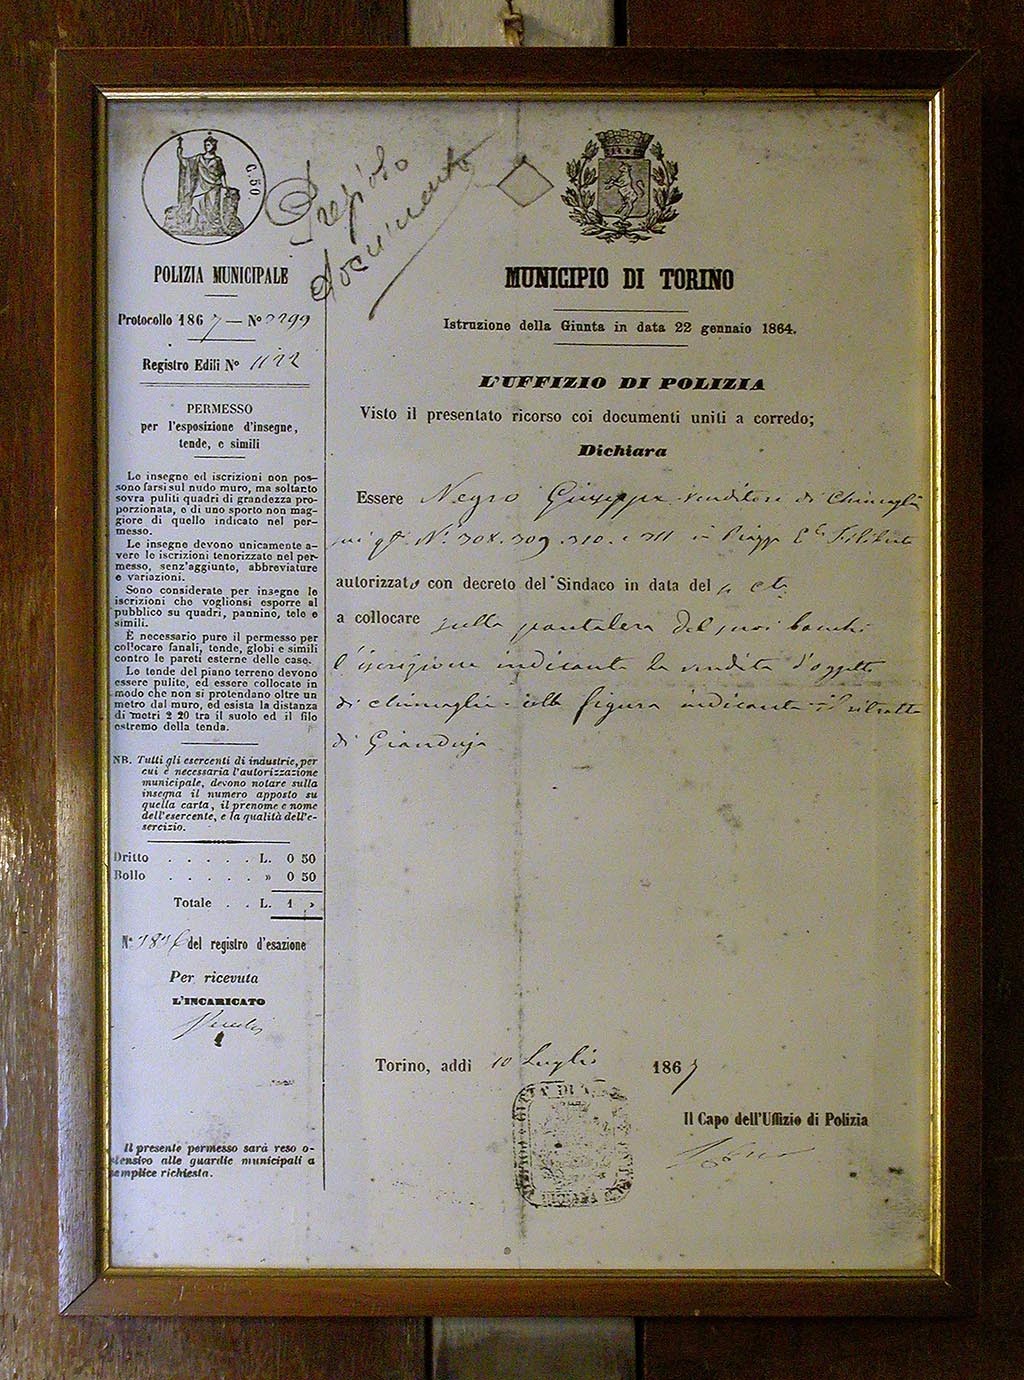 C. 50
Prezioso
documento
POLIZIA MUNICIPALE
Protocollo 1867 — Nº 2299
Registro Edili Nº 1122
PERMESSO
per l'esposizione d'insegne,
tende, e simili
Le insegne ed iscrizioni non pos-
sono farsi sul nudo muro, ma soltanto
sovra puliti quadri di grandezza pro-
porzionata, e di uno sporto non mag-
giore di quello indicato nel per-
messo.
Le insegne devono unicamente a-
vere le iscrizioni tenorizzate nel per-
messo, senz'aggiunte, abbreviature
e variazioni.
Sono considerate per insegne le
iscrizioni che voglionsi esporre al
pubblico su quadri, pannine, tele e
simili.
È necessario pure il permesso per
collocare fanali, tende, globi e simili
contro le pareti esterne delle case.
Le tende del piano terreno devono
essere pulite, ed essere collocate in
modo che non si protendano oltre un
metro dal muro, ed esista la distanza
di metri 2 20 tra il suolo ed il filo
estremo della tenda.
NB. Tutti gli esercenti di industrie, per
cui è necessaria l'autorizzazione
municipale, devono notare sulla
insegna il numero apposto su
quella carta, il prenome e nome
dell'esercente, e la qualità dell'e-
sercizio.
Dritto . . . . . L. 0 50
Bollo . . . . . » 0 50
Totale . . L. 1 »
Nº del registro d'esazione
Per ricevuta
L'INCARICATO
Il presente permesso sarà reso o-
stensivo alle guardie municipali a
semplice richiesta.
MUNICIPIO DI TORINO
Istruzione della Giunta in data 22 gennaio 1864.
L'UFFIZIO DI POLIZIA
Visto il presentato ricorso coi documenti uniti a corredo;
Dichiara
Essere Negro Giuseppe venditore di chincaglie
sui gli Nº 308. 309. 310. e 311 in Piazza E. Filiberto
autorizzato con decreto del Sindaco in data del
a collocare sulla pantalera dei suoi banchi
l'iscrizione indicante la vendita d'oggetti
di chincaglie colla figura indicante il ritratto
di Gianduja
Torino, addì 10 Luglio 1867
Il Capo dell'Uffizio di Polizia